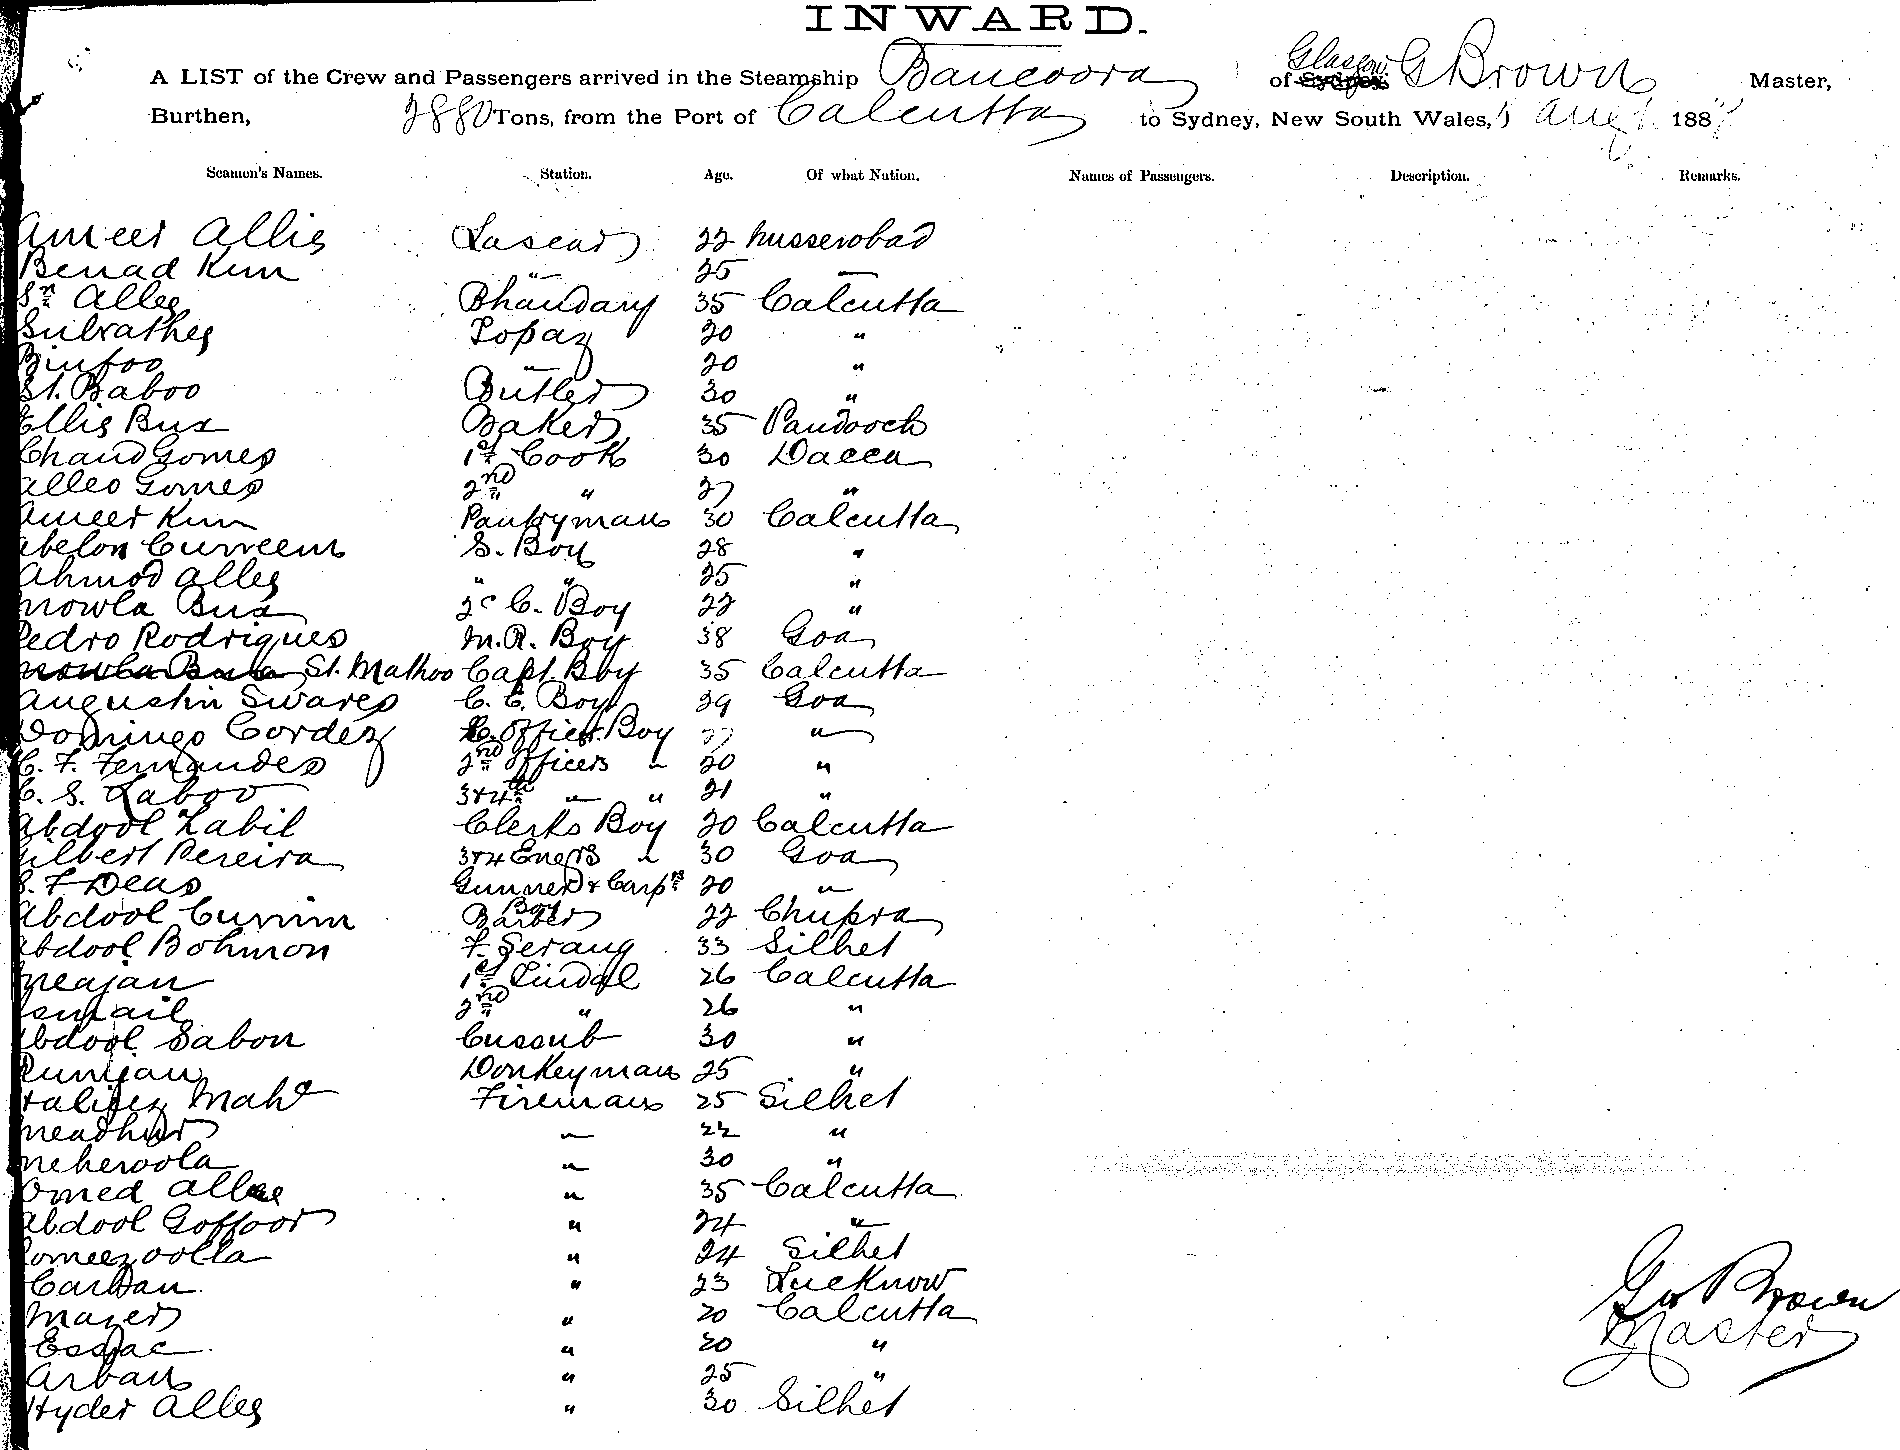 INWARD.
A LIST of the Crew and Passengers arrived in the Steamship Bancoora of Glasgow Sydney: G Brown Master,
Burthen, 2880 Tons, from the Port of Calcutta to Sydney, New South Wales, Augt 188
Seamen's Names. Station. Age. Of what Nation. Names of Passengers. Description. Remarks.
Ameer Allie Lascar 22 Nusserobad
Benad Kim " 25 "
Sn Alley Bhandary 35 Calcutta
Topaz 20 "
Binfoo " 20 "
St. Baboo Butler 30 "
Ellis Bux Baker 35 Pandooch
Chand Gomes 1st Cook 30 Dacca
Alleo Gomes 2nd " 27 "
Ameer Kim Pantryman 30 Calcutta
Abelon Curreem S. Boy 28 "
Ahmod Alley " " 25 "
Mowla Bux 2c C. Boy 22 "
Pedro Rodrigues M.R. Boy 38 Goa
Mowla Bux St. Mathoo Capt. Boy 35 Calcutta
Augustin Swares C. E. Boy 29 Goa
Domingo Cordez C. Officer Boy 27 "
C. F. Fernandes 2nd Officers " 20 "
C. S. Laboo 3 & 4th " " 21 "
Abdool Labil Clerks Boy 20 Calcutta
Gilbert Pereira 3 & 4 Engrs " 30 Goa
S. F Deas Gunner & Carprs Boy 20 "
Abdool Currim Barber 22 Chupra
Abdool Bohmon F. Serang 33 Silhet
Meajan 1st Tindal 26 Calcutta
Esmail 2nd " 26 "
Abdool Sabon Cussub 30 "
Runijan Donkeyman 25 "
Mahd Fireman 25 Silhet
Meadhur " 22 "
Meheroola " 30 "
Omed Allee " 35 Calcutta
Abdool Goffoor " 24 "
Romeezoolla " 24 Silhet
" 23 Lucknow
Mazer " 20 Calcutta
Essac " 20 "
Arban " 25 "
Hyder Alley " 30 Silhet
Geo Brown
Master